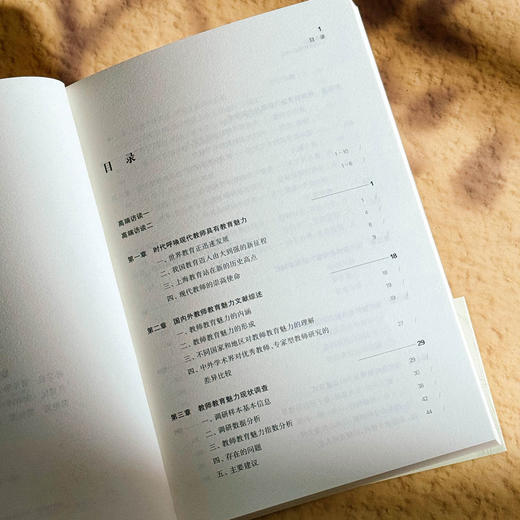 1
目 录
目 录
高端访谈一 1-10
高端访谈二 1-6
第一章 时代呼唤现代教师具有教育魅力 1
一、世界教育正迅速发展 1
二、我国教育迈入由大到强的新征程 4
三、上海教育站在新的历史高点 8
四、现代教师的崇高使命 9
第二章 国内外教师教育魅力文献综述 18
一、教师教育魅力的内涵
二、教师教育魅力的形成
三、不同国家和地区对教师教育魅力的理解
四、中外学术界对优秀教师、专家型教师研究的
差异比较 27
第三章 教师教育魅力现状调查 29
一、调研样本基本信息
二、调研数据分析
三、教师教育魅力指数分析 38
四、存在的问题 42
五、主要建议 44